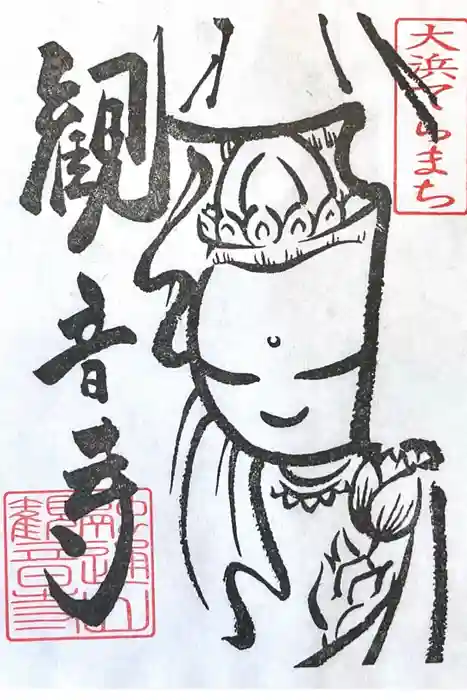 大浜てらまち
観音寺